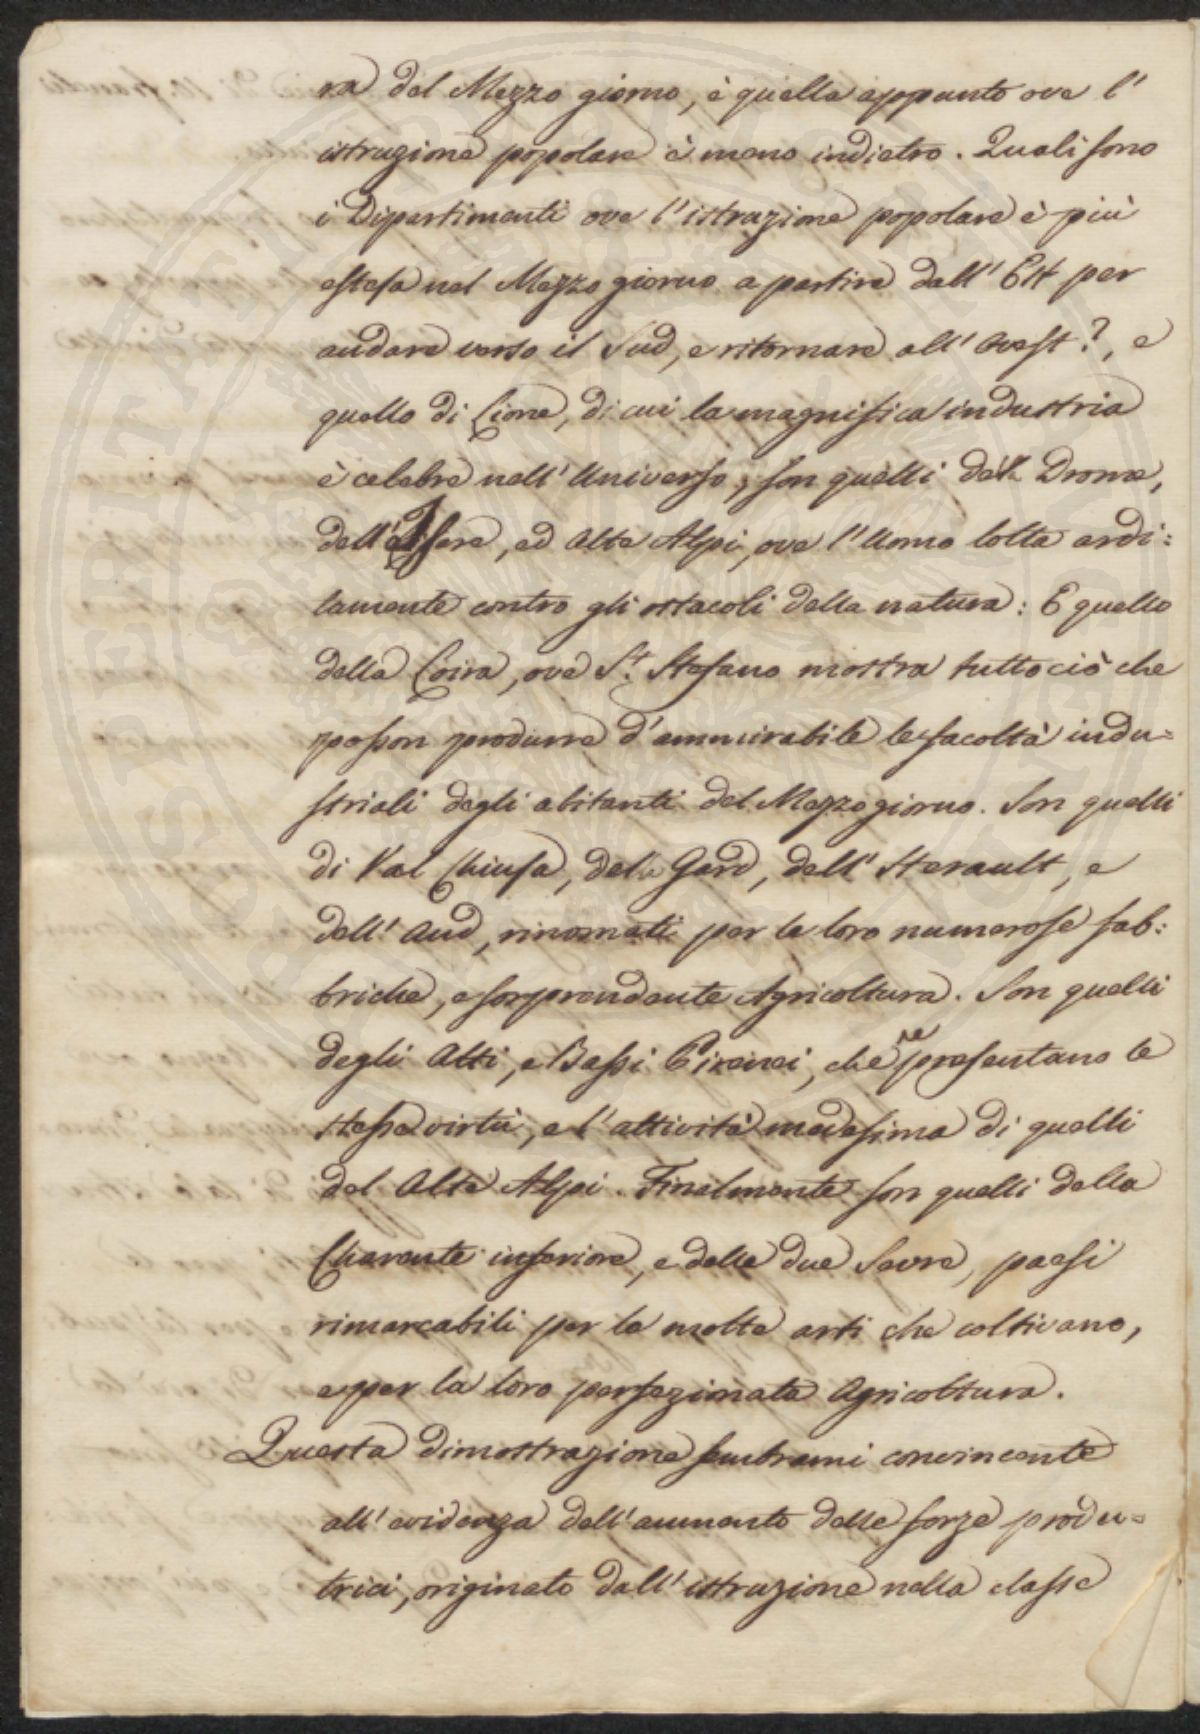 ra del Mezzo giorno, è quella appunto ove l'
istruzione popolare è meno indietro. Quali sono
i Dipartimenti ove l'istruzione popolare è più
estesa nel Mezzo giorno a partire dall'Est per
andare verso il Sud, e ritornare all'Ovest?, e
quello di Lione, di cui la magnifica industria
è celebre nell'Universo, son quelli della Drome,
dell'Isere, ed Alte Alpi, ove l'Uomo lotta ardi:
tamente contro gli ostacoli della natura: E quello
della Loira, ove St. Stefano mostra tutto ciò che
posson produrre d'ammirabile le facoltà indu=
striali degli abitanti del Mezzogiorno. Son quelli
di Val Chiusa, del Gard, dell'Herault, e
dell'Aud, rinomati per le loro numerose fab:
briche, e sorprendente Agricoltura. Son quelli
degli Alti, e Bassi Pirenei, che represesentano le
stesse virtù, e l'attività medesima di quelli
del Alte Alpi. Finalmente son quelli della
Charente inferiore, e delle due Sevre, paesi
rimarcabili per le molte arti che coltivano,
e per la loro perfezionata Agricoltura.
Questa dimostrazione sembrami convincente
all'evidenza dell'aumento delle forze produ=
trici, originato dall'istruzione nella classe